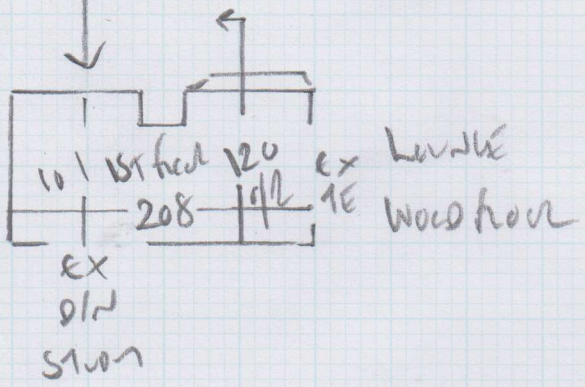 10 1ST floor 120 EX LOUNGE
208 d/2 1E WOOD floor
EX
DIN
STUDY